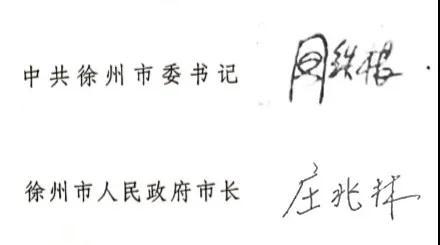 中共徐州市委书记 周铁根
徐州市人民政府市长 庄兆林